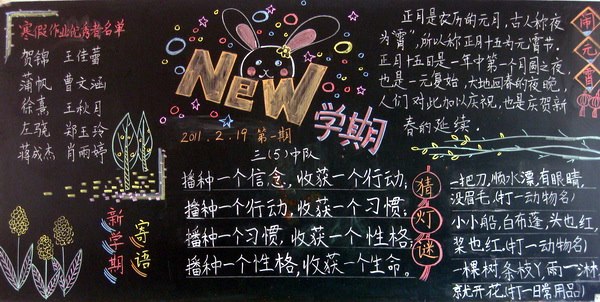 寒假作业优秀者名单
贺锦 王佳蕾
蒲帆 曹文涵
徐熹 王秋月
左骁 郑玉玲
蒋成杰 肖雨婷
新学期
寄语
NeW
学期
2011.2.19 第一期
三(5)中队
播种一个信念,收获一个行动;
播种一个行动,收获一个习惯;
播种一个习惯,收获一个性格;
播种一个性格,收获一个生命。
闹元宵
正月是农历的元月,古人称夜
为“宵”,所以称正月十五为元宵节。
正月十五日是一年中第一个月圆之夜,
也是一元复始,大地回春的夜晚,
人们对此加以庆祝,也是庆贺新
春的延续.
猜灯谜
一把刀,顺水漂,有眼睛,
没眉毛,(打一动物名)
小小船,白布篷,头也红,
桨也红,(打一动物名)
一棵树,条枝丫,雨一淋,
就开花(打一日常用品)